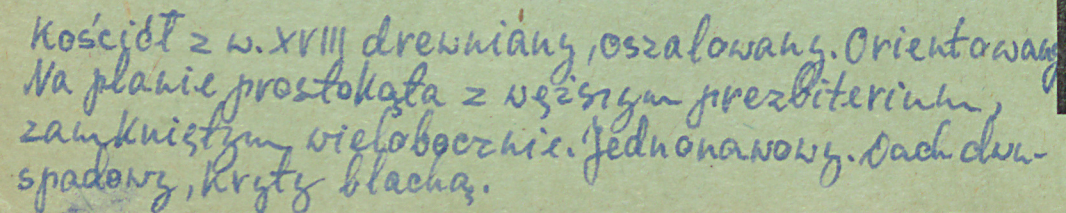 Kościół z w. XVIII drewniany, oszalowany. Orientowany
Na planie prostokąta z węższym prezbiterium,
zamkniętym wielobocznie. Jednonawowy. Dach dwu-
spadowy, kryty blachą.